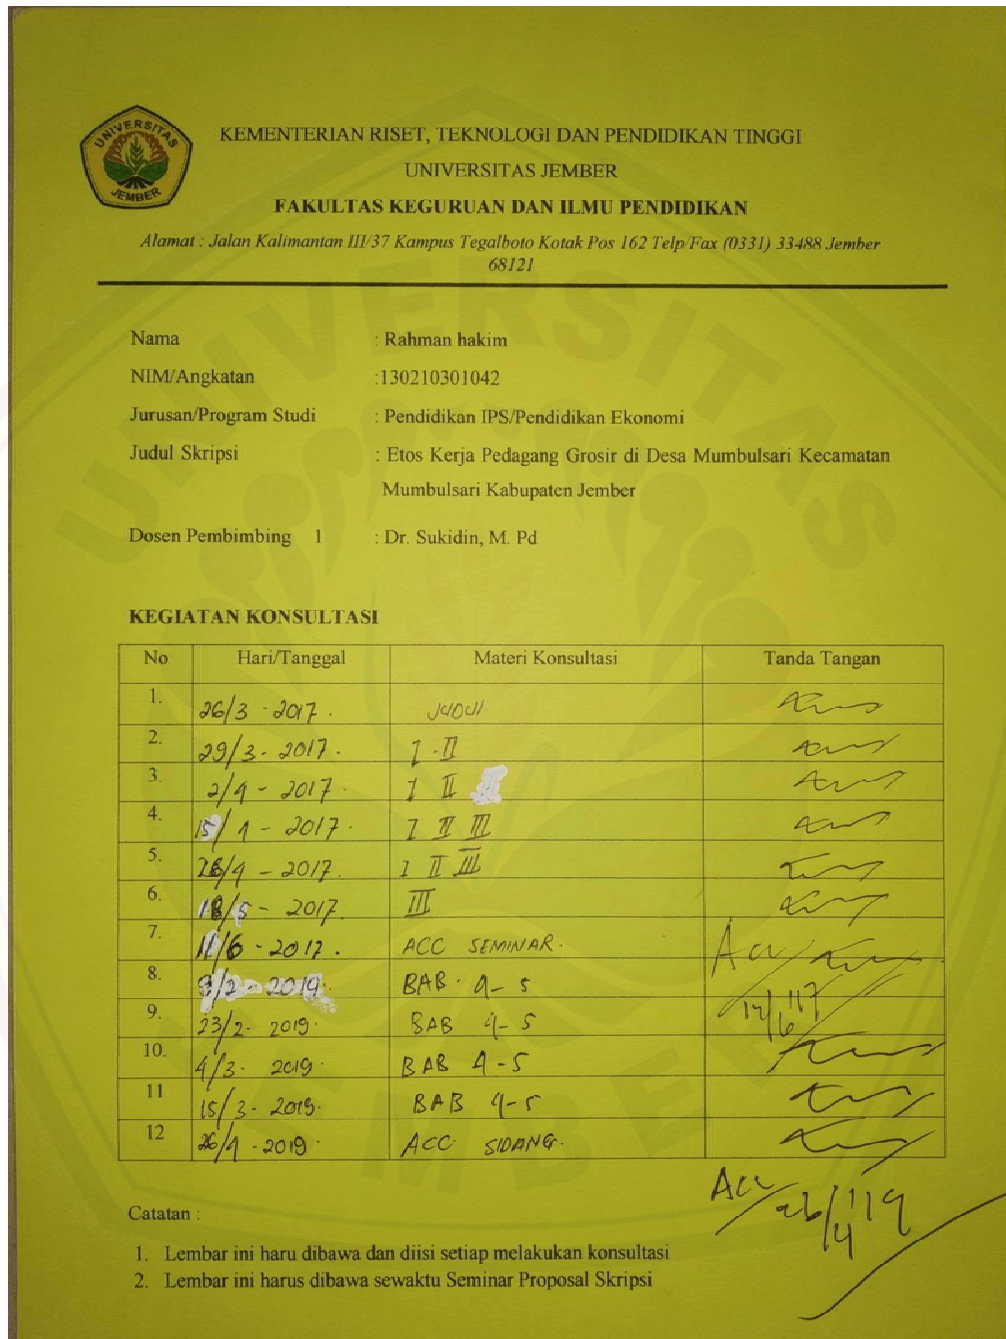 UNIVERSITAS
JEMBER
KEMENTERIAN RISET, TEKNOLOGI DAN PENDIDIKAN TINGGI
UNIVERSITAS JEMBER
FAKULTAS KEGURUAN DAN ILMU PENDIDIKAN
Alamat : Jalan Kalimantan III/37 Kampus Tegalboto Kotak Pos 162 Telp/Fax (0331) 33488 Jember
68121
Nama : Rahman hakim
NIM/Angkatan :130210301042
Jurusan/Program Studi : Pendidikan IPS/Pendidikan Ekonomi
Judul Skripsi : Etos Kerja Pedagang Grosir di Desa Mumbulsari Kecamatan
Mumbulsari Kabupaten Jember
Dosen Pembimbing 1 : Dr. Sukidin, M. Pd
KEGIATAN KONSULTASI
No Hari/Tanggal Materi Konsultasi Tanda Tangan
1. 26/3 - 2017. Judul
2. 29/3 - 2017. I - II
3. 2/4 - 2017. I II
4. 15/4 - 2017. I II III
5. 28/4 - 2017. I II III
6. 18/5 - 2017. III
7. 11/6 - 2017. ACC SEMINAR. Acc
8. 9/2 - 2019. BAB. 4-5
12/6 '17
9. 23/2 - 2019. BAB 4-5
10. 4/3 - 2019. BAB 4-5
11 15/3 - 2019. BAB 4-5
12 26/4 - 2019. ACC SIDANG.
Acc 26/4 '19
Catatan :
1. Lembar ini haru dibawa dan diisi setiap melakukan konsultasi
2. Lembar ini harus dibawa sewaktu Seminar Proposal Skripsi
UNIVERSITAS